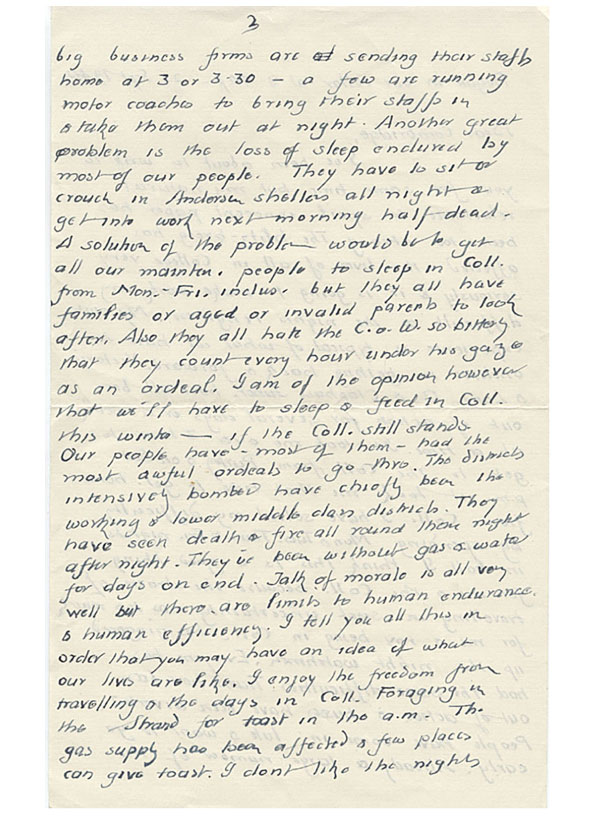 3
big business firms are sending their staff
home at 3 or 3.30 – a few are running
motor coaches to bring their staff in
& take them out at night. Another great
problem is the loss of sleep endured by
most of our people. They have to sit or
crouch in Anderson shelters all night &
get into work next morning half dead.
A solution of the problem would be to get
all our mainten. people to sleep in Coll.
from Mon.-Fri. inclus. but they all have
families or aged or invalid parents to look
after. Also they all hate the C.o.W. so bitterly
that they count every hour under his gaze
as an ordeal. I am of the opinion however
that we'll have to sleep & feed in Coll.
this winter — if the Coll. still stands.
Our people have – most of them – had the
most awful ordeals to go thro. The districts
intensively bombed have chiefly been the
working & lower middle class districts. They
have seen death & fire all round them night
after night. They've been without gas & water
for days on end. Talk of morale is all very
well but there are limits to human endurance
& human efficiency. I tell you all this in
order that you may have an idea of what
our lives are like. I enjoy the freedom from
travelling & the days in Coll. Foraging in
the Strand for toast in the a.m. The
gas supply has been affected & few places
can give toast. I dont like the nights